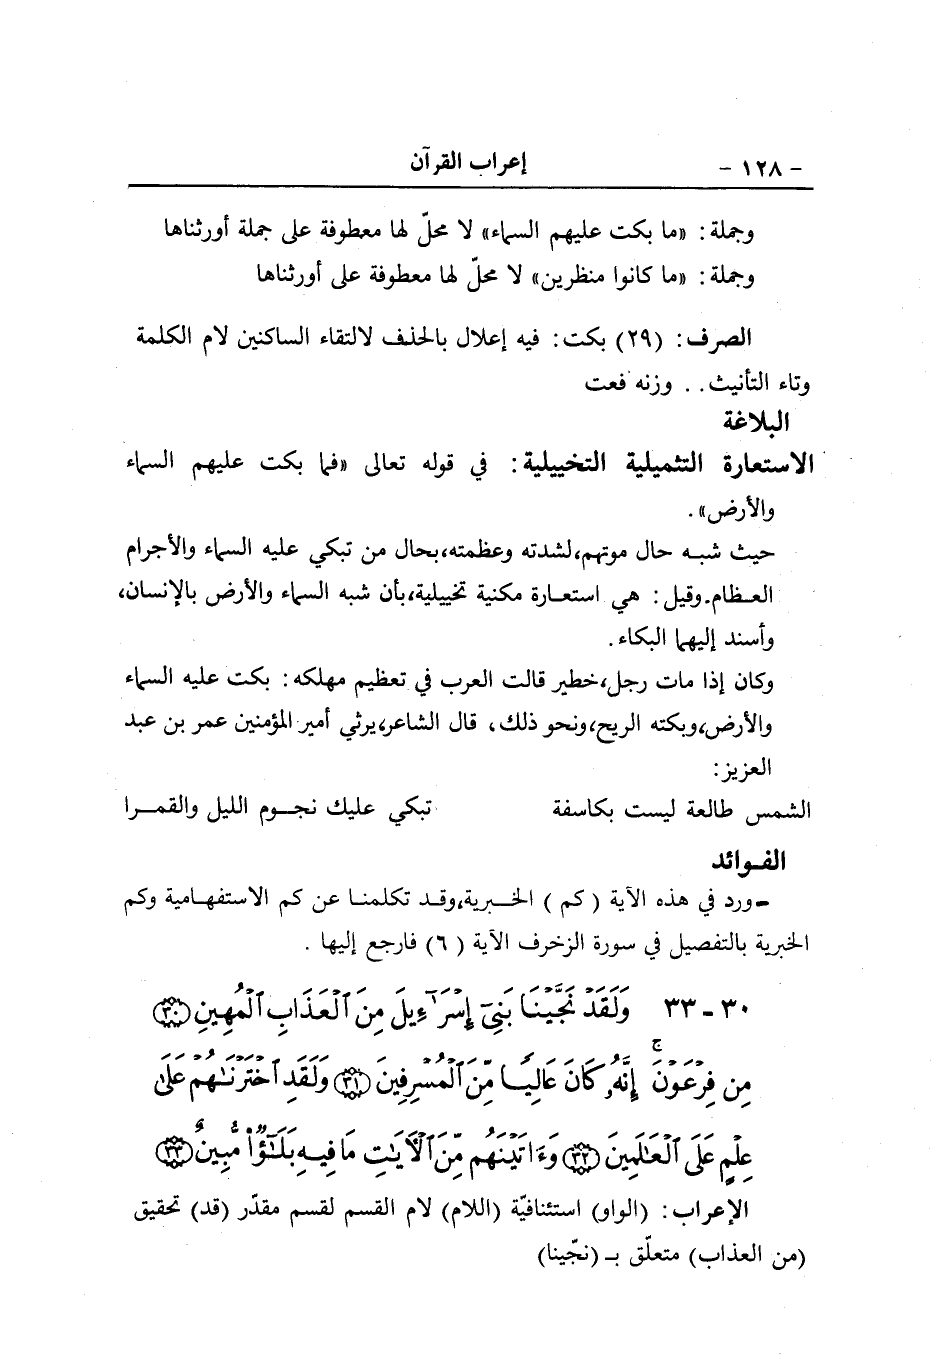 - ١٢٨ - إعراب القرآن
وجملة: «ما بكت عليهم السماء» لا محلّ لها معطوفة على جملة أورثناها
وجملة: «ما كانوا منظرين» لا محلّ لها معطوفة على أورثناها
الصرف: (٢٩) بكت: فيه إعلال بالحذف لالتقاء الساكنين لام الكلمة
وتاء التأنيث. . وزنه فعت
البلاغة
الاستعارة التثميلية التخييلية: في قوله تعالى «فما بكت عليهم السماء
والأرض».
حيث شبه حال موتهم،لشدته وعظمته،بحال من تبكي عليه السماء والأجرام
العظام.وقيل: هي استعارة مكنية تخييلية،بأن شبه السماء والأرض بالإنسان،
وأسند إليهما البكاء.
وكان إذا مات رجل،خطير قالت العرب في تعظيم مهلكه: بكت عليه السماء
والأرض،وبكته الريح،ونحو ذلك، قال الشاعر،يرثي أمير المؤمنين عمر بن عبد
العزيز:
الشمس طالعة ليست بكاسفة تبكي عليك نجوم الليل والقمرا
الفوائد
-ورد في هذه الآية (كم) الخبرية،وقد تكلمنا عن كم الاستفهامية وكم
الخبرية بالتفصيل في سورة الزخرف الآية (٦) فارجع إليها.
٣٠ - ٣٣ وَلَقَدْ نَجَّيْنَا بَنِيٓ إِسْرَٰٓءِيلَ مِنَ ٱلْعَذَابِ ٱلْمُهِينِ ﴿٣٠﴾
مِن فِرْعَوْنَ ۚ إِنَّهُۥ كَانَ عَالِيًا مِّنَ ٱلْمُسْرِفِينَ ﴿٣١﴾ وَلَقَدِ ٱخْتَرْنَٰهُمْ عَلَىٰ
عِلْمٍ عَلَى ٱلْعَٰلَمِينَ ﴿٣٢﴾ وَءَاتَيْنَٰهُم مِّنَ ٱلْءَايَٰتِ مَا فِيهِ بَلَٰٓؤٌا۟ مُّبِينٌ ﴿٣٣﴾
الإعراب: (الواو) استئنافيّة (اللام) لام القسم لقسم مقدّر (قد) تحقيق
(من العذاب) متعلّق بـ (نجّينا)